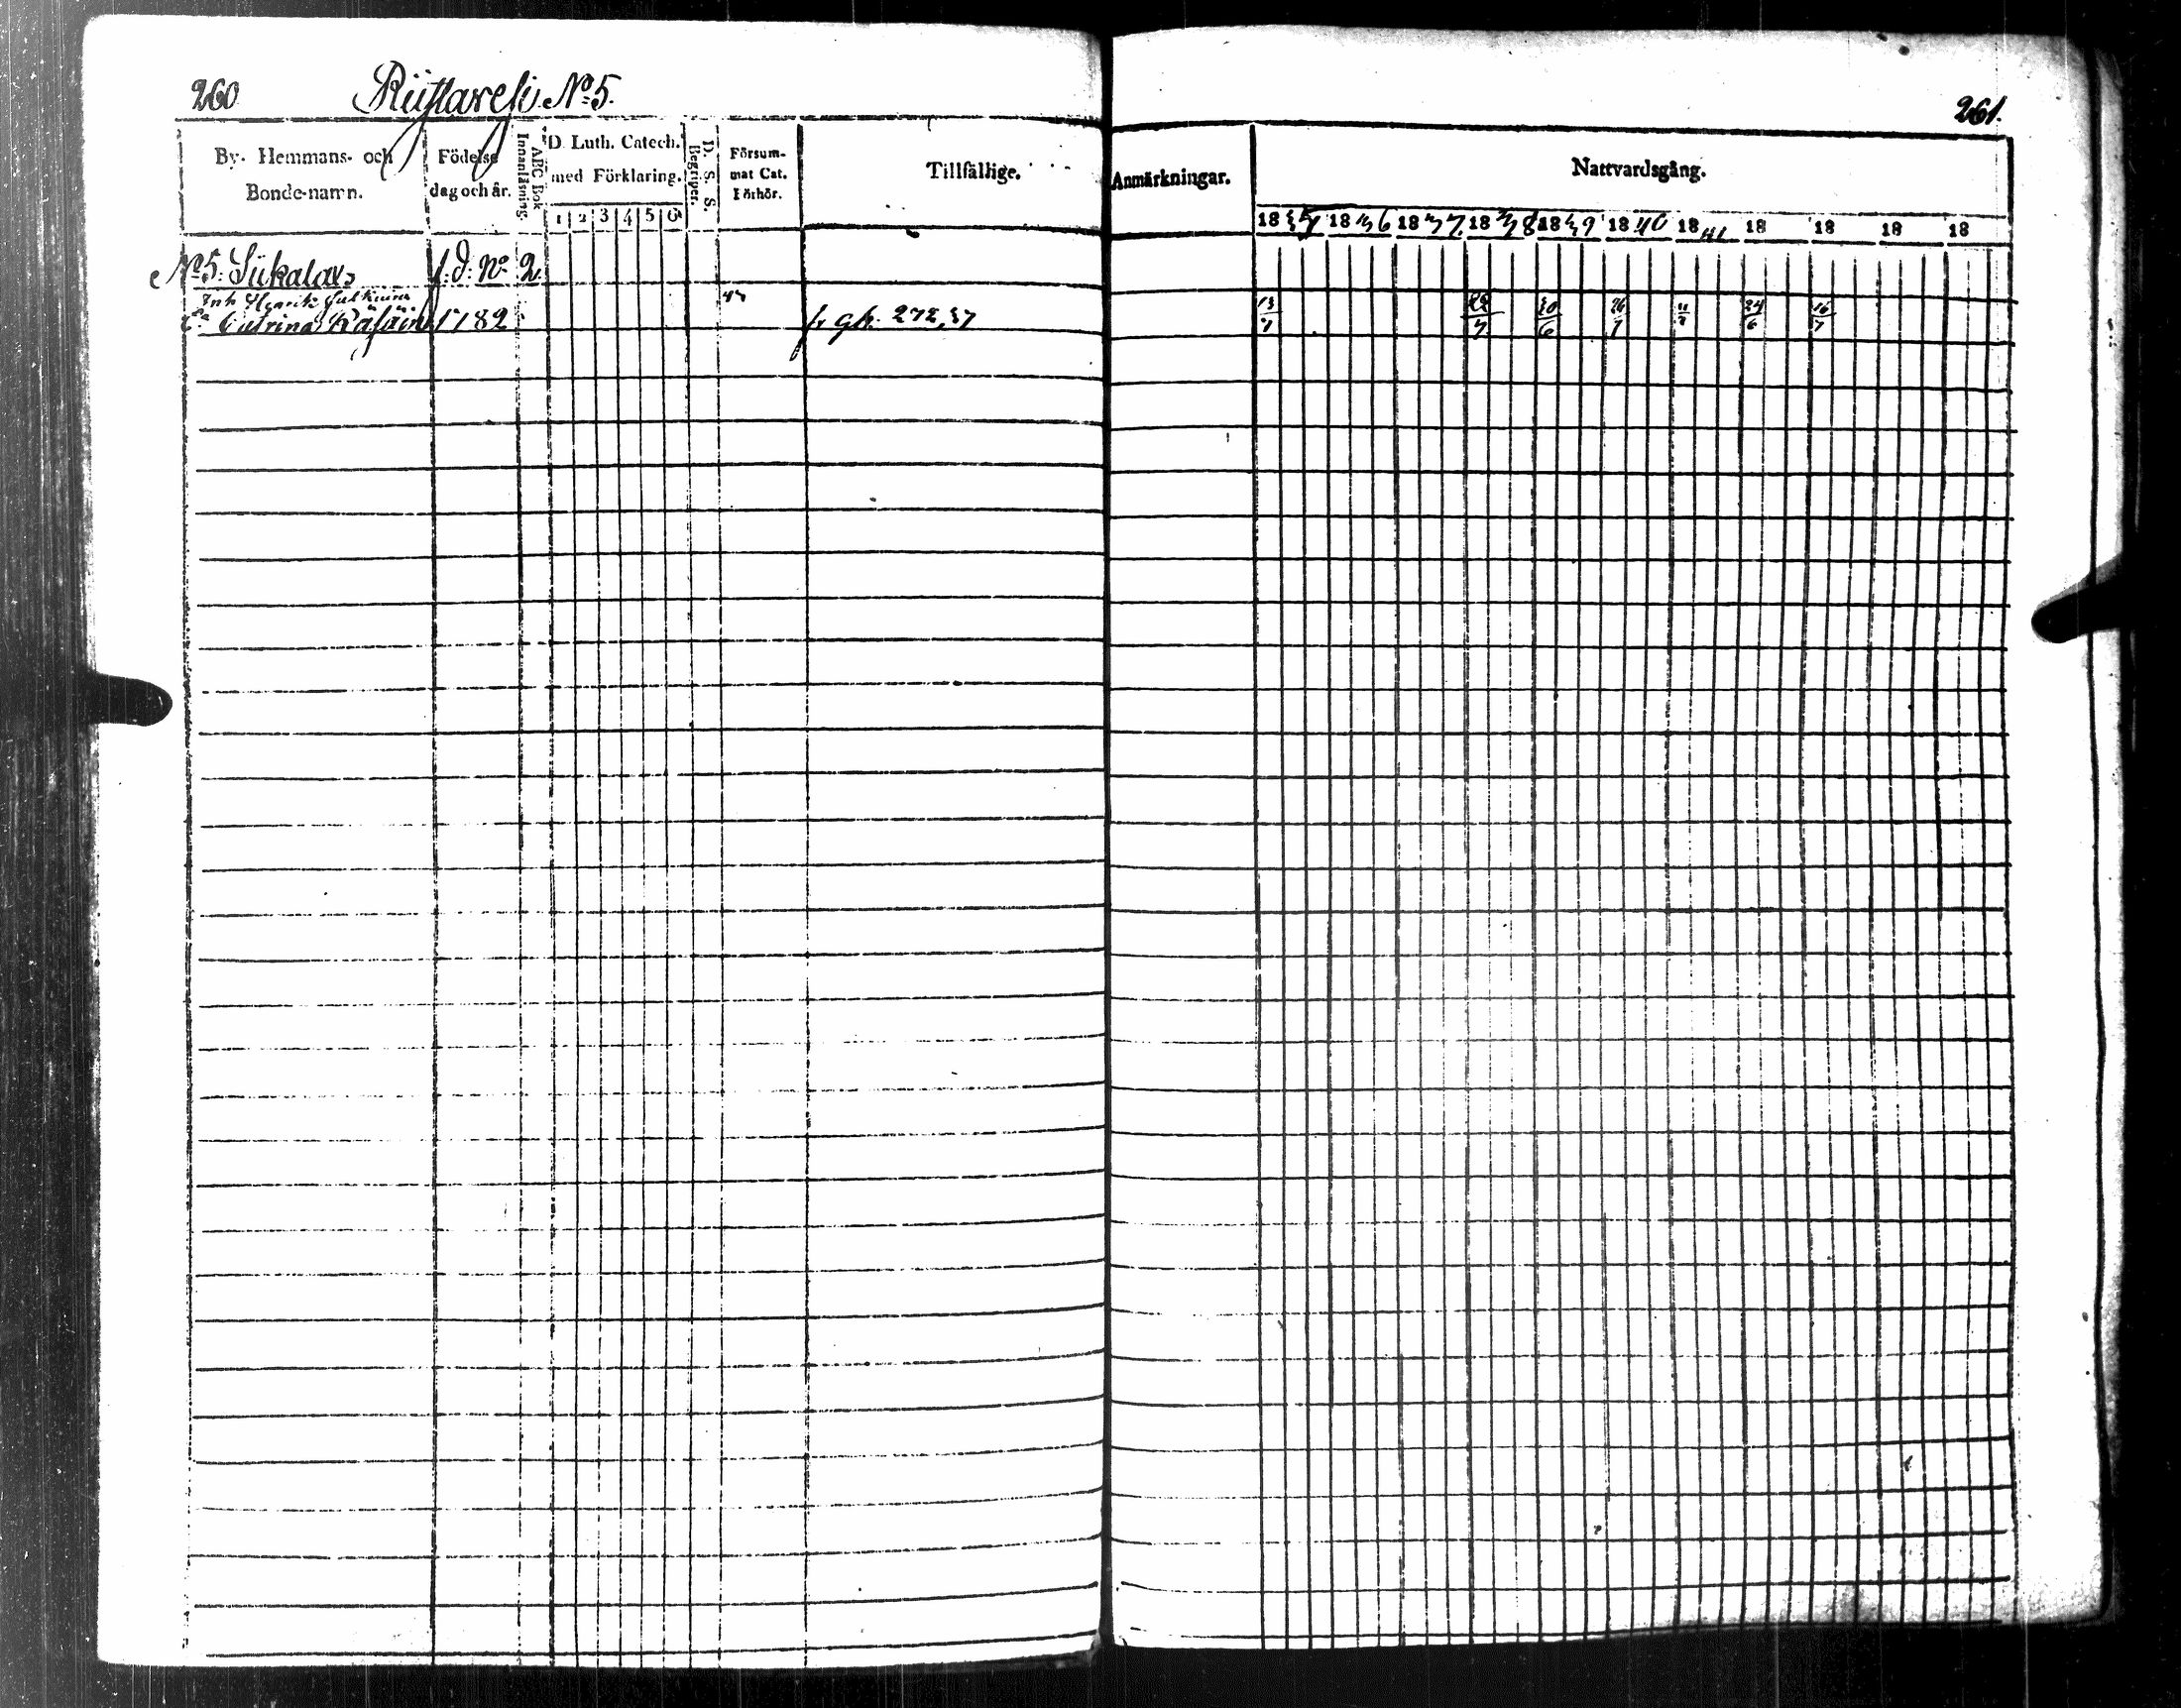 260 Riistavesi No 5.
261.
By- Hemmans- och Bonde-namn.
Födelse dag och år.
ABC Bok Innanläsning.
D. Luth. Catech. med Förklaring.
1 2 3 4 5 6
D. S. S. Begriper.
Försum- mat Cat. Förhör.
Tillfällige.
Anmärkningar.
Nattvardsgång.
18 37 18 36 18 37 18 38 18 39 18 40 18 41 18 18 18 18
No 5. f. d. No 2.
Henrik
Catrina Räsäin 1782 272, 37 13/7 /7 30/6 26/7 24/6 16/7